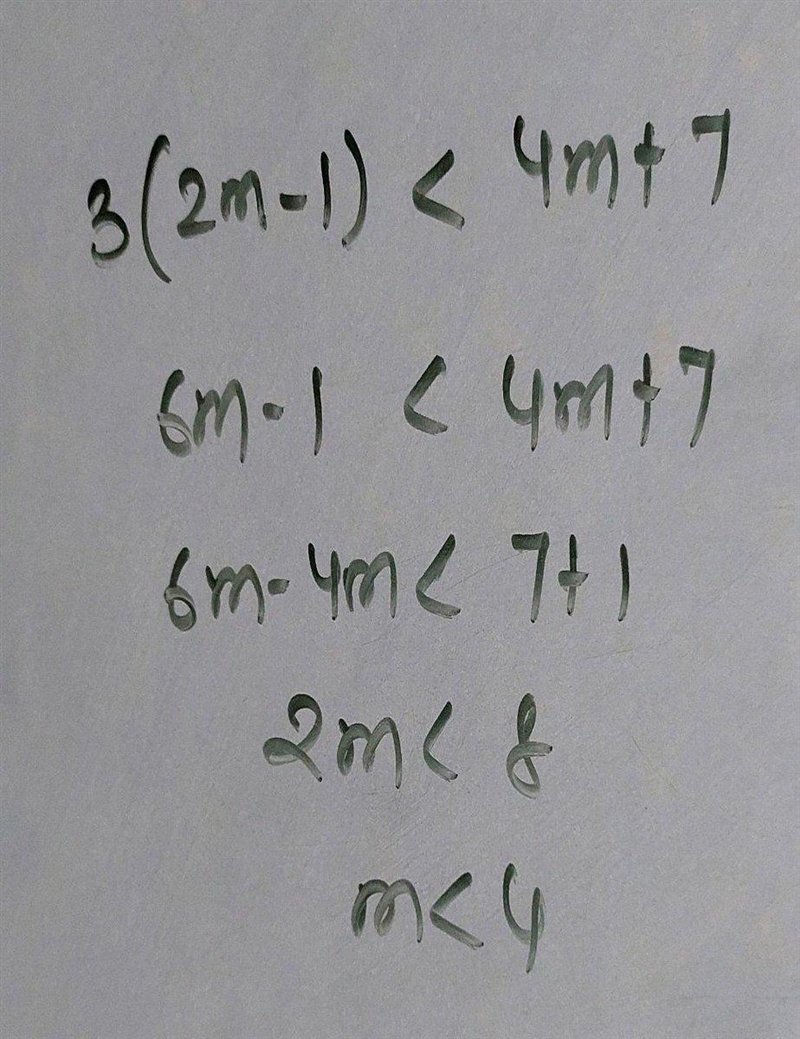 3(2m-1) < 4m+7
6m-1 < 4m+7
6m-4m < 7+1
2m < 8
m < 4